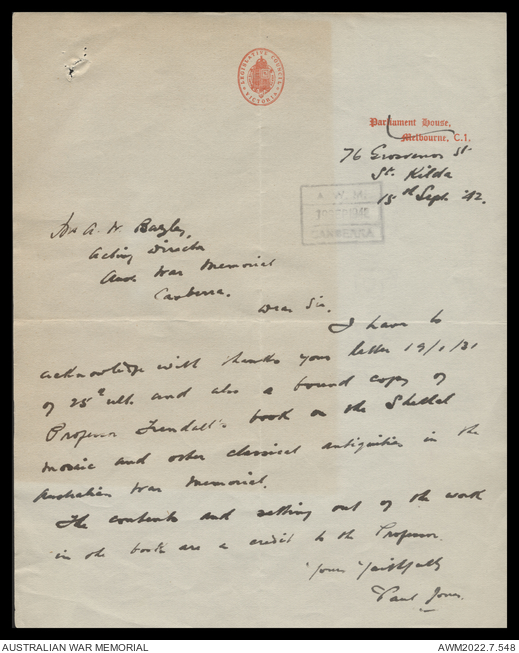 LEGISLATIVE COUNCIL
VICTORIA
Parliament House,
Melbourne, C.1.
76 Grosvenor St
St. Kilda
15th Sept. 42.
A. W. M.
CANBERRA
Mr A. W. Bazley,
Acting Director
Aus. War Memorial
Canberra.
Dear Sir,
I have to
acknowledge with thanks your letter 19/1/31
of 25th ult. and also a bound copy of
Professor Trendall's book on the Shellal
mosaic and other classical antiquities in the
Australian War Memorial.
The contents and setting out of the work
in the book are a credit to the Professor.
Yours faithfully
Paul Jones.
AUSTRALIAN WAR MEMORIAL
AWM2022.7.548